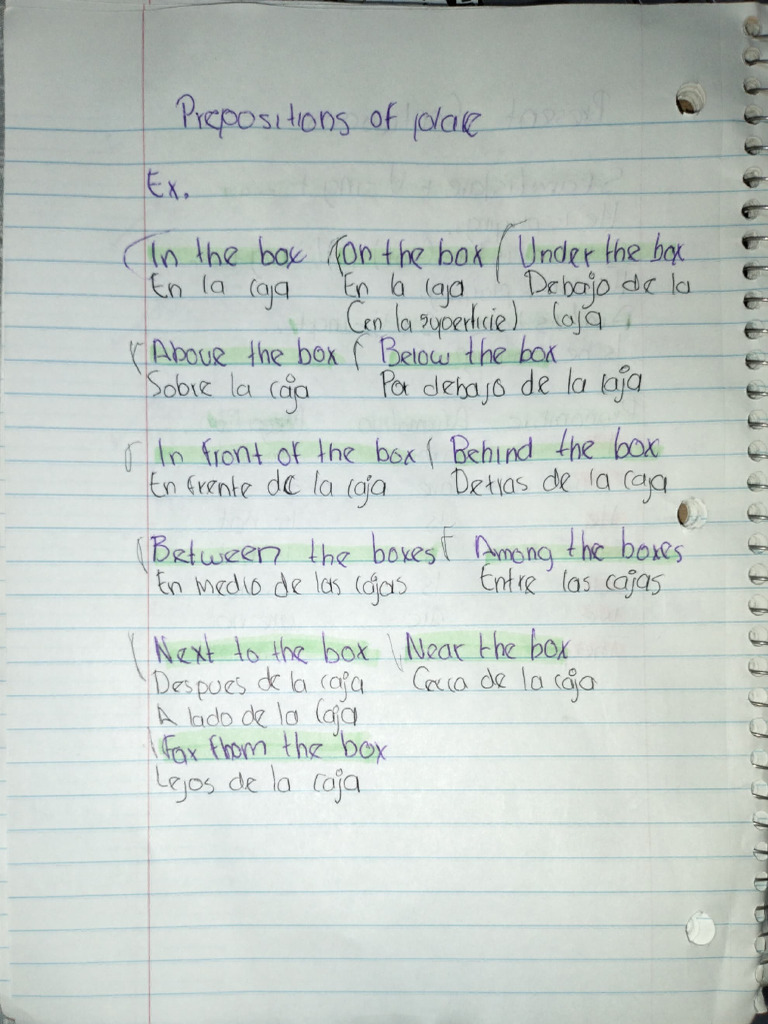 Prepositions of place
Ex.
In the box (On the box (Under the box
En la caja En la caja Debajo de la
(en la superficie) caja
(Above the box ( Below the box
Sobre la caja Por debajo de la caja
( In front of the box ( Behind the box
En frente de la caja Detras de la caja
(Between the boxes ( Among the boxes
En medio de las cajas Entre las cajas
(Next to the box (Near the box
Despues de la caja Cerca de la caja
A lado de la caja
(Far from the box
Lejos de la caja